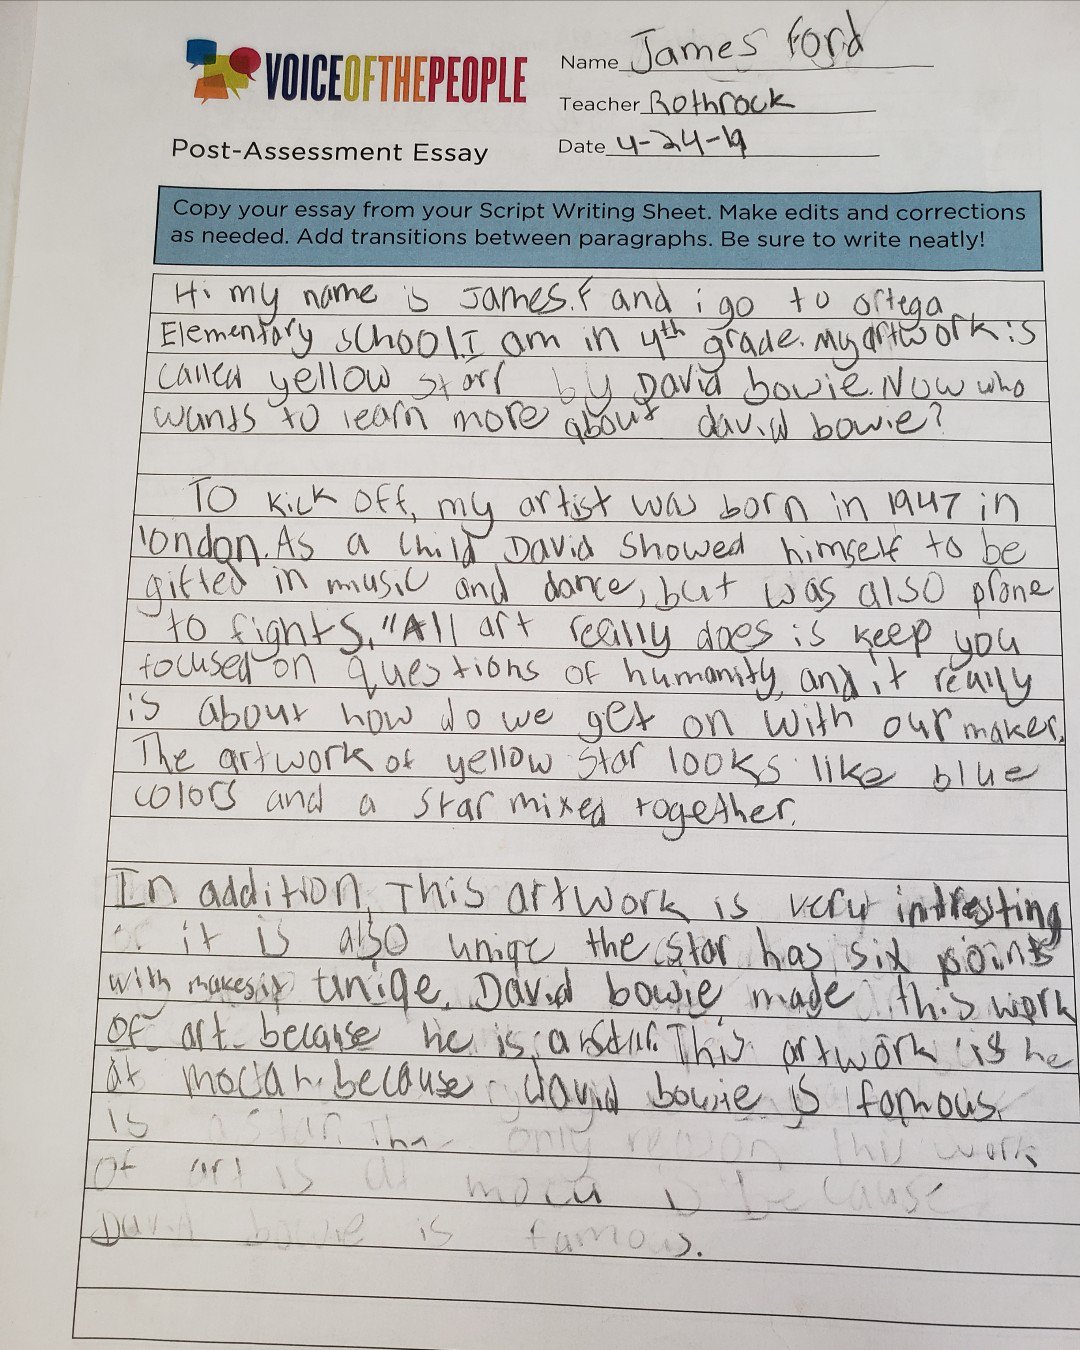 VOICEOFTHEPEOPLE
Name James Ford
Teacher Rothrock
Date 4-24-19
Post-Assessment Essay
Copy your essay from your Script Writing Sheet. Make edits and corrections
as needed. Add transitions between paragraphs. Be sure to write neatly!
Hi my name is James.F and i go to ortega
Elementary school.I am in 4th grade. My artwork is
called yellow star by David bowie. Now who
wants to learn more about david bowie?
To kick off, my artist was born in 1947 in
london. As a child David showed himself to be
gifted in music and dance, but was also prone
to fights. "All art really does is keep you
focused on questions of humanity, and it really
is about how do we get on with our maker.
The artwork of yellow star looks like blue
colors and a star mixed together.
In addition, This artwork is very intresting
it is also uniqe the star has six points
with makes it uniqe. David bowie made this work
of art because he is a star. This artwork is he
at because david bowie is famous.
is a star. The only reason this work
of art is at moca is because
David bowie is famous.